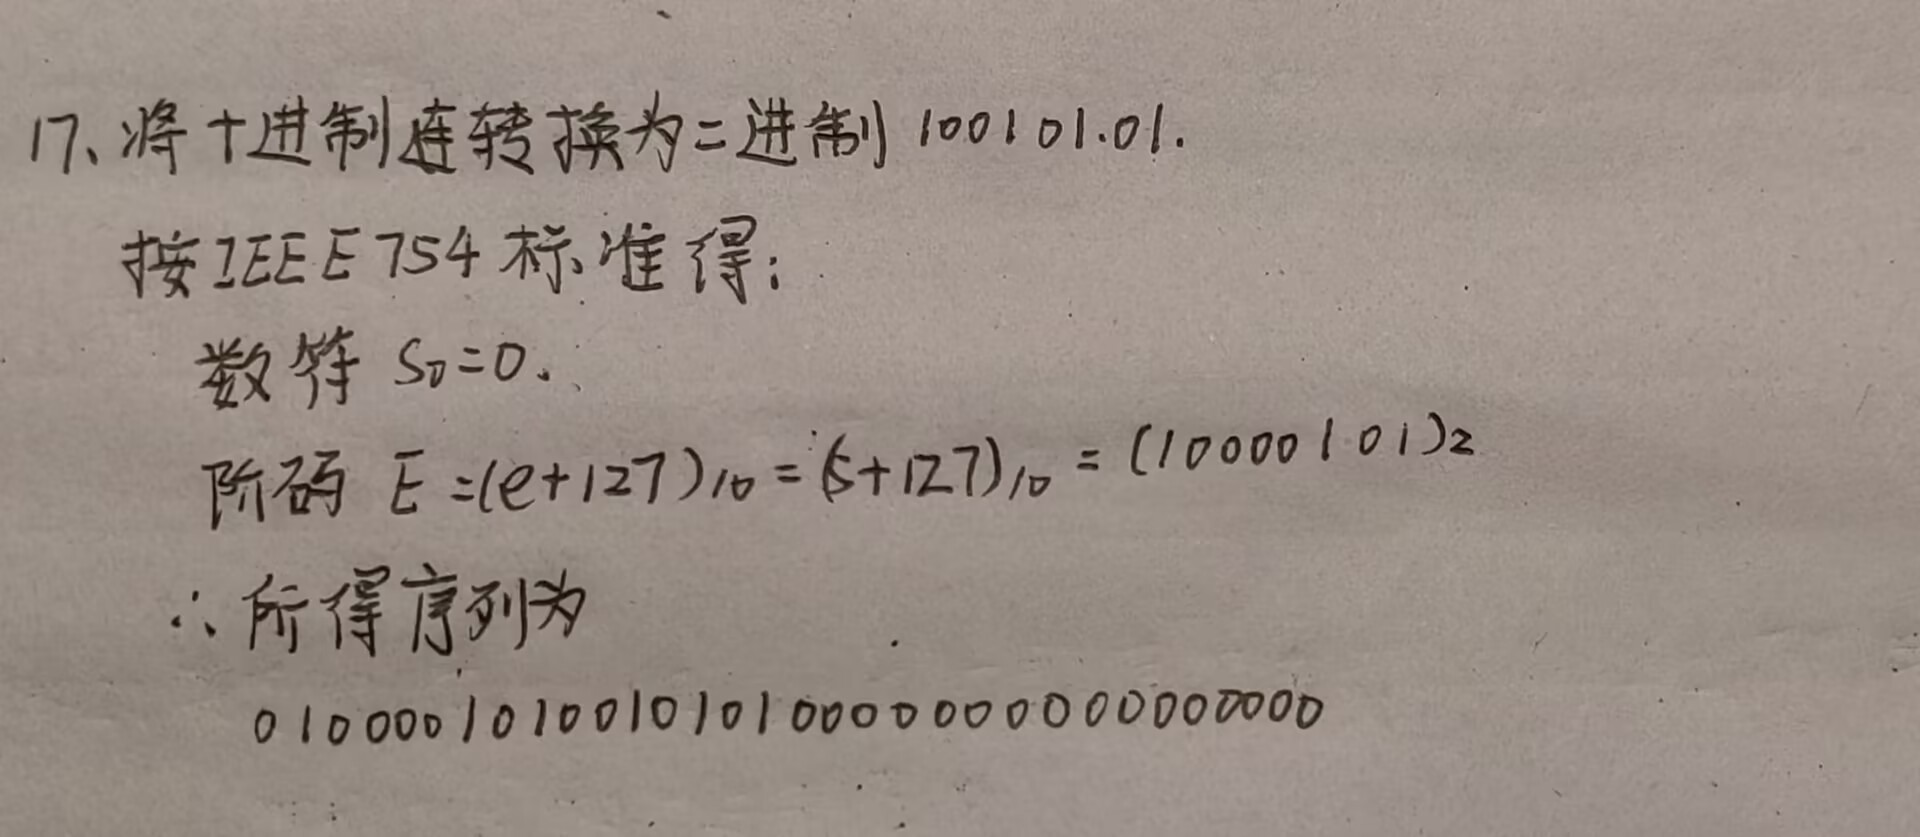 17、将十进制连转换为二进制 100101.01.
按IEEE754标准得:
数符 S0=0.
阶码 E=(e+127)10=(5+127)10=(10000101)2
∴所得序列为
01000010100101010000000000000000